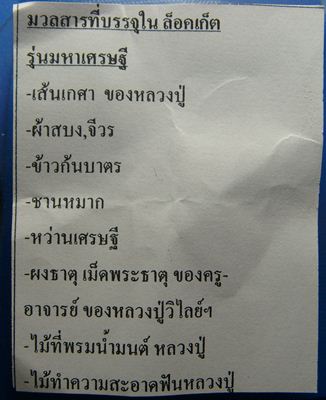 มวลสารที่บรรจุใน ล็อคเก็ต
รุ่นมหาเศรษฐี
-เส้นเกศา ของหลวงปู่
-ผ้าสบง,จีวร
-ข้าวก้นบาตร
-ชานหมาก
-หว่านเศรษฐี
-ผงธาตุ เม็ดพระธาตุ ของครู-
อาจารย์ ของหลวงปู่วิไลย์ฯ
-ไม้ที่พรมน้ำมนต์ หลวงปู่
-ไม้ทำความสะอาดฟันหลวงปู่